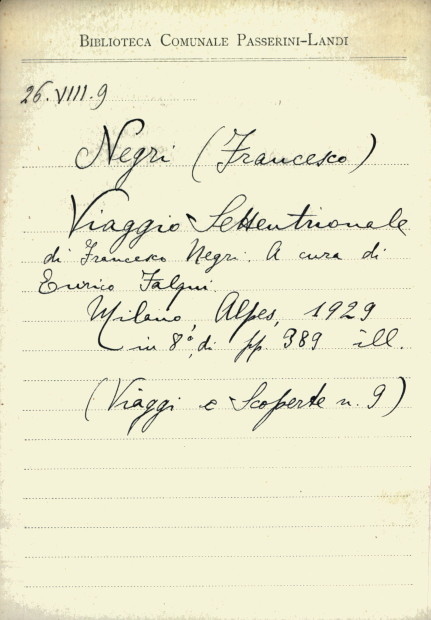 BIBLIOTECA COMUNALE PASSERINI-LANDI
26.VIII.9
Negri (Francesco)
Viaggio Settentrionale
di Francesco Negri. A cura di
Enrico Falqui.
Milano Alpes, 1929
in 8°, di pp. 389 ill.
(Viaggi e Scoperte n. 9)